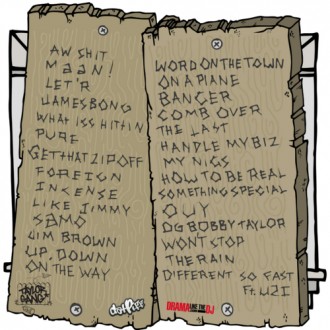 AW SHIT
MAAN!
LET'R
JAMESBONG
WHAT ISS HITTIN
PURE
GETTHAT ZIPOFF
FOREIGN
INCENSE
LIKE JIMMY
SBMO
JIM BROWN
UP, DOWN
ON THE WAY
TAYLOR GANG
WORD ON THE TOWN
ON A PLANE
BANGER
COMB OVER
THE LAST
HANDLE MY BIZ
MY NIGS
HOW TO BE REAL
SOMETHING SPECIAL
OUY
OG BOBBY TAYLOR
WON'T STOP
THE RAIN
DIFFERENT SO FAST
Ft. UZI
DatPiff
DRAMA LIKE THE DJ